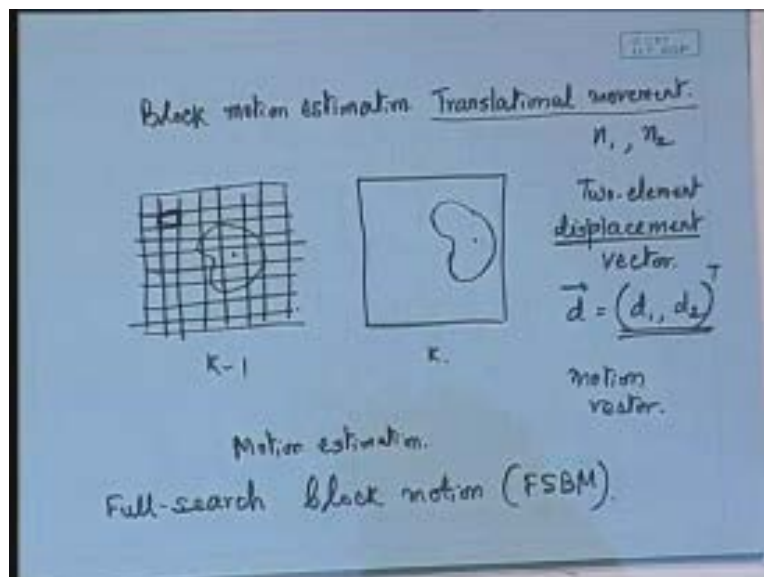 Block motion estimation Translational movement.
n₁, n₂
Two-element
displacement
vector.
d⃗ = (d₁, d₂)ᵀ
K-1
K.
Motion
vector.
Motion estimation.
Full-search block motion (FSBM).